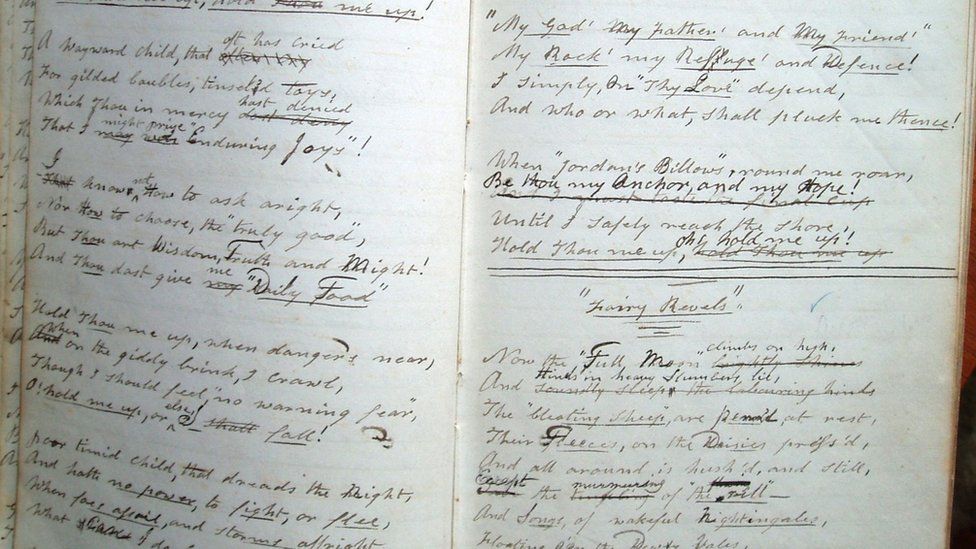 hold Thou me up!
A wayward child, that oft has cried
For gilded baubles, tinsel'd toys,
Which Thou in mercy hast denied
That I might prize "Enduring Joys"!
I know not how to ask aright,
Nor How to choose, the "truly good",
But Thou art Wisdom, Truth and Might!
And Thou dost give me "Daily Food"
Hold Thou me up, when danger's near,
When on the gidely brink, I crawl,
Though I should feel, "no warning fear",
O! hold me up, or else I shall fall!
Poor timid child, that dreads the Night,
And hath no power, to fight, or flee,
When foes assail, and storms affright
What
"My God! My Father! and My Friend!"
My Rock! my Reffuge! and Defence!
I simply, On "Thy Love" depend,
And who or what, shall pluck me thence!
When "Jordan's Billows", round me roar,
Be thou my Anchor, and my Hope!
Until I safely reach the shore,
Hold Thou me up, Oh, hold me up! hold Thou me up
"Fairy Revels"
Now the "Full Moon" climbs on high,
And Hinds in heavy Slumbers lie, soundly sleeps the labouring hinds
The "bleating sheep", are penn'd, at rest,
Their Fleeces, on the Daisies press'd,
And all around, is hush'd, and still,
Except the murmuring of "the rill"—
And Songs, of wakeful Nightingales,
Floating o'er the Dewy Vales,